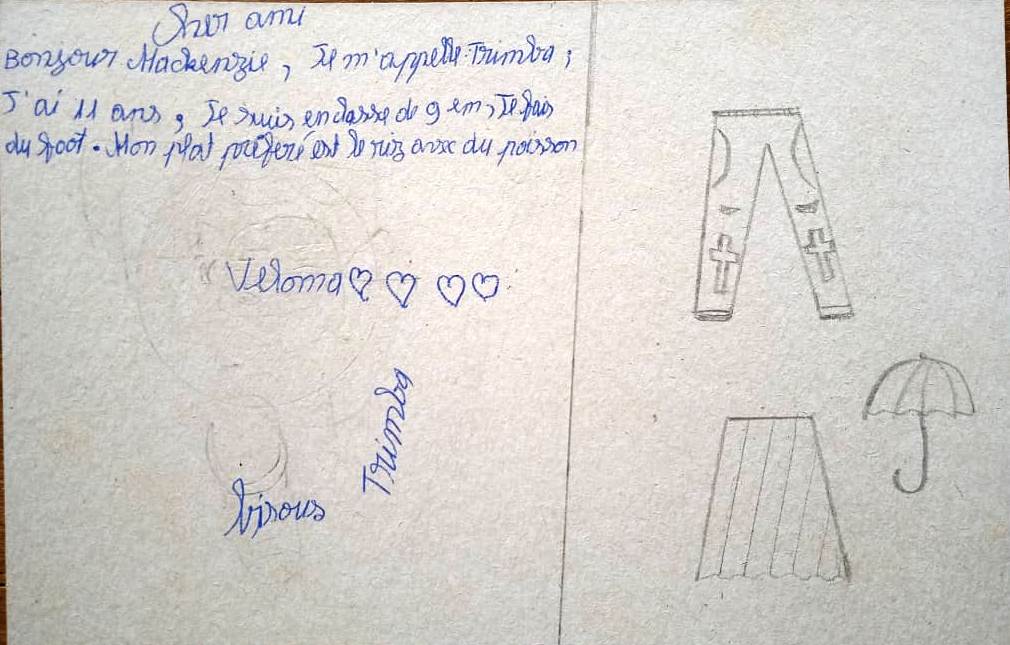 Cher ami
Bonjour Mackenzie, Je m'appelle Trimba,
J'ai 11 ans, Je suis en classe de 9 em, Je fais
du foot. Mon plat préféré est le riz avec du poisson
Veloma
Trimba
bisous